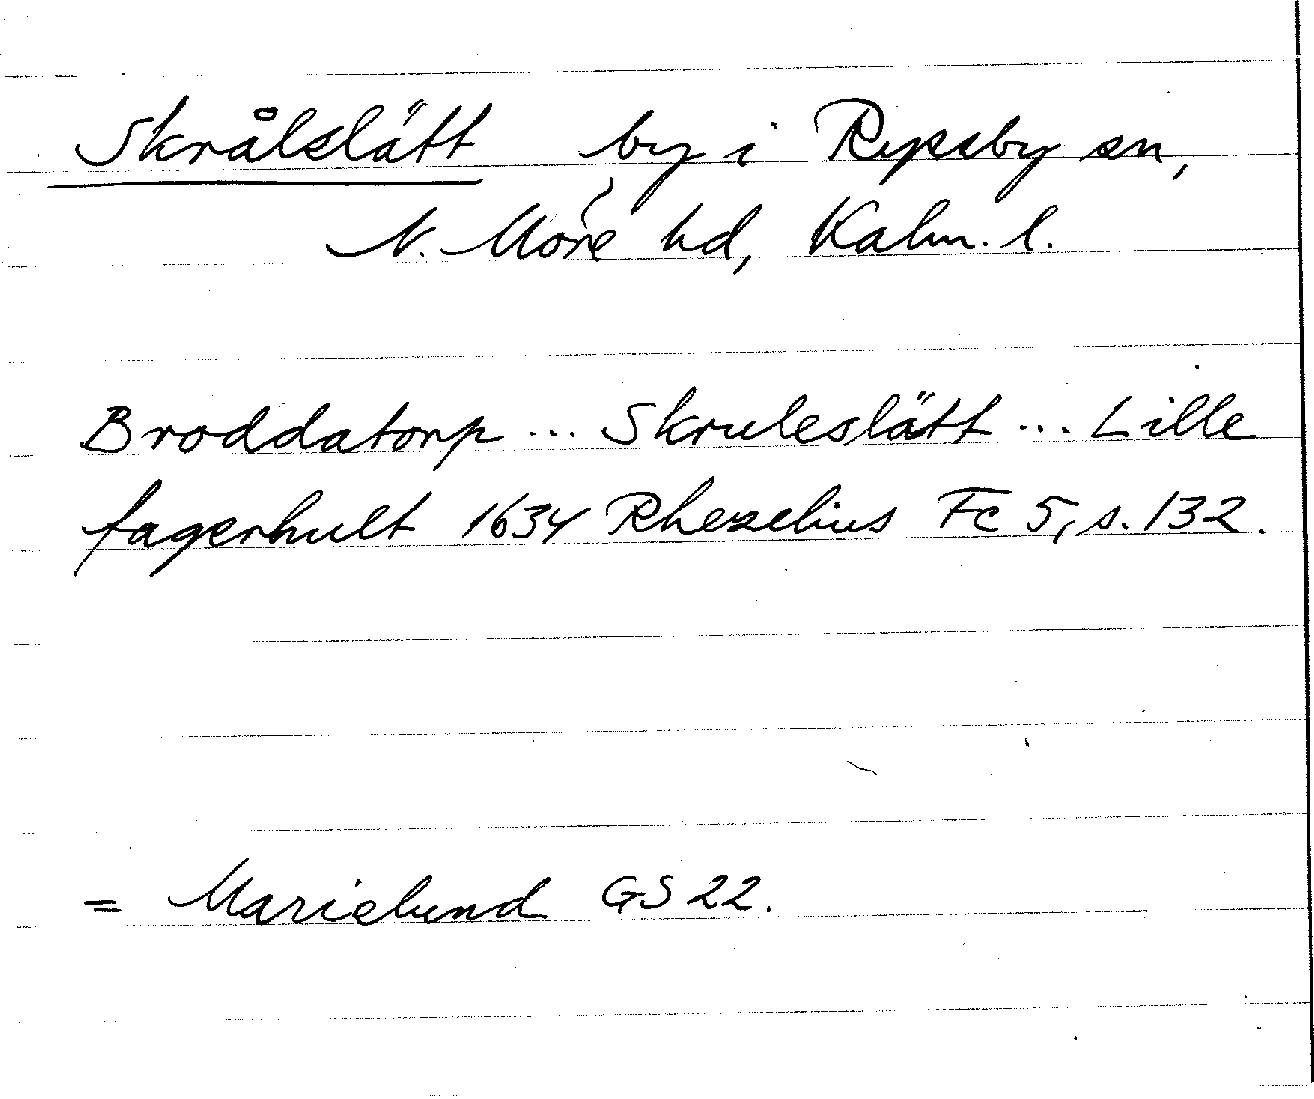 Skrålslätt by i Ryssby sn,
N. Möre hd, Kalm. l.
Broddatorp ... Skruleslätt ... Lille
fagerhult 1634 Rhezelius Fc 5, s. 132.
= Marielund GS 22.